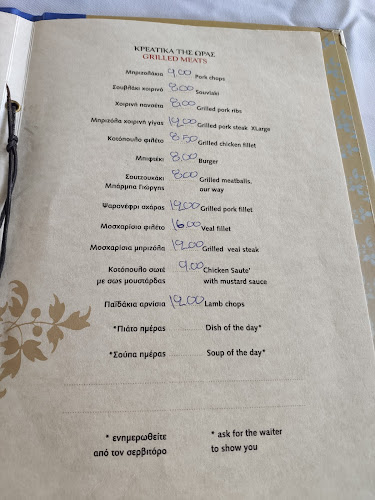 ΚΡΕΑΤΙΚΑ ΤΗΣ ΩΡΑΣ
GRILLED MEATS
Μπριζολάκια 9,00 Pork chops
Σουβλάκι χοιρινό 8,00 Souvlaki
Χοιρινή πανσέτα 8,00 Grilled pork ribs
Μπριζόλα χοιρινή γίγας Grilled pork steak XLarge
Κοτόπουλο φιλέτο 8,50 Grilled chicken fillet
Μπιφτέκι 8,00 Burger
Σουτζουκάκι 8,00 Grilled meatballs,
Μπάρμπα Γιώργης our way
Ψαρονέφρι σχάρας Grilled pork fillet
Μοσχαρίσιο φιλέτο 16,00 Veal fillet
Μοσχαρίσια μπριζόλα Grilled veal steak
Κοτόπουλο σωτέ 9,00 Chicken Saute'
με σως μουστάρδας with mustard sauce
Παϊδάκια αρνίσια Lamb chops
*Πιάτο ημέρας Dish of the day*
*Σούπα ημέρας Soup of the day*
* ενημερωθείτε * ask for the waiter
από τον σερβιτόρο to show you